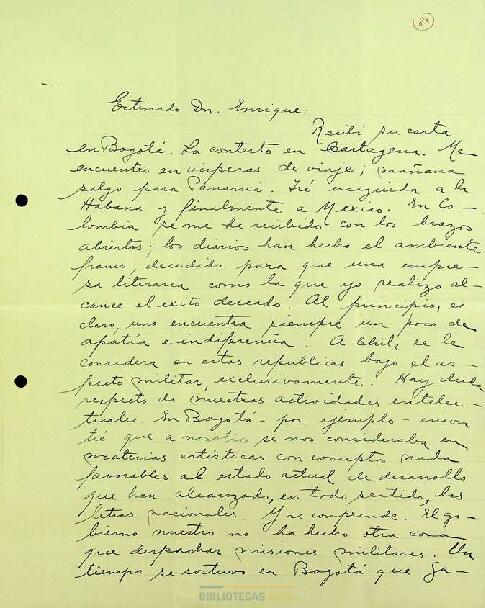 23
Estimado Dr. Enrique:
Recibí su carta
en Bogotá. La contesto en Cartagena. Me
encuentro en vísperas de viaje; mañana
salgo para Panamá. Iré enseguida a la
Habana y finalmente a México. En Co-
lombia se me ha recibido con los brazos
abiertos; los diarios han hecho el ambiente
franco, decidido para que una empre-
sa literaria como la que yo realizo al-
cance el éxito deseado. Al principio, es
claro, uno encuentra siempre un poco de
apatía e indiferencia. A Chile, se le
considera en estas repúblicas bajo el as-
pecto militar, exclusivamente. Hay duda
respecto de nuestras actividades intelec-
tuales. En Bogotá - por ejemplo -
que a nosotros se nos consideraba en
materias artísticas con concepto nada
favorables al estado actual de desarrollo
que han alcanzado, en todo sentido, las
letras nacionales. Y se comprende. El go-
bierno nuestro no ha hecho otra cosa
que despachar misiones militares. Un
tiempo se sostuvo en Bogotá que ja-
BIBLIOTECAS